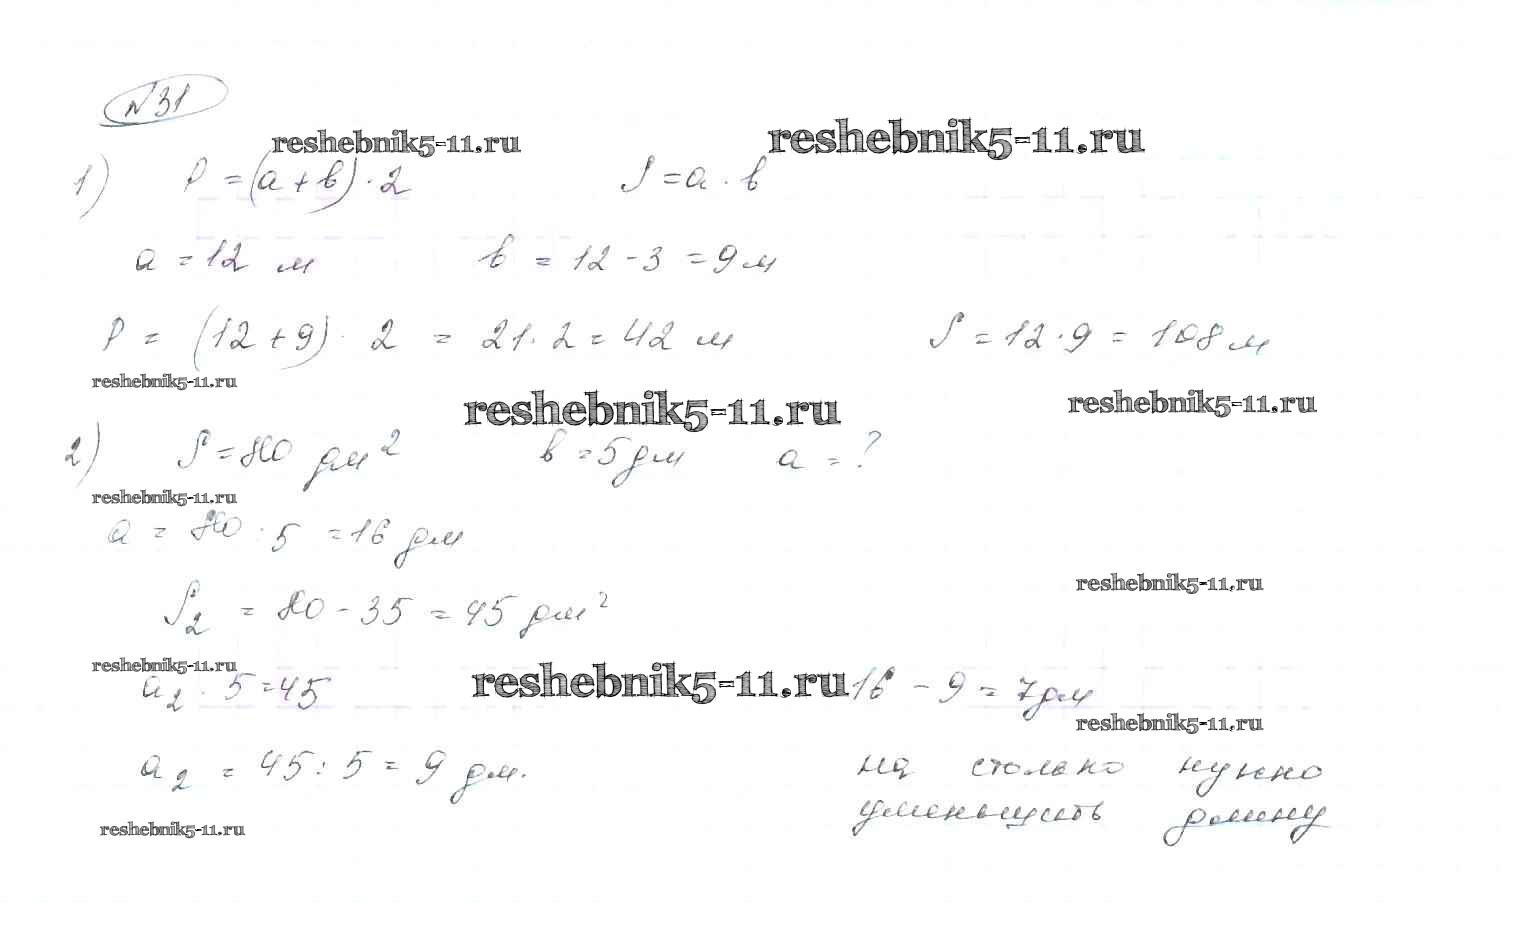 №31
reshebnik5-11.ru reshebnik5-11.ru
1) P = (a + b) · 2 S = a · b
a = 12 м b = 12 - 3 = 9 м
P = (12 + 9) · 2 = 21 · 2 = 42 м S = 12 · 9 = 108 м
reshebnik5-11.ru reshebnik5-11.ru reshebnik5-11.ru
2) S = 80 дм² b = 5 дм a = ?
reshebnik5-11.ru
a = 80 : 5 = 16 дм
reshebnik5-11.ru
S₂ = 80 - 35 = 45 дм²
reshebnik5-11.ru reshebnik5-11.ru
a₂ · 5 = 45 16 - 9 = 7 дм
reshebnik5-11.ru
a₂ = 45 : 5 = 9 дм. на столько нужно
уменьшить длину
reshebnik5-11.ru